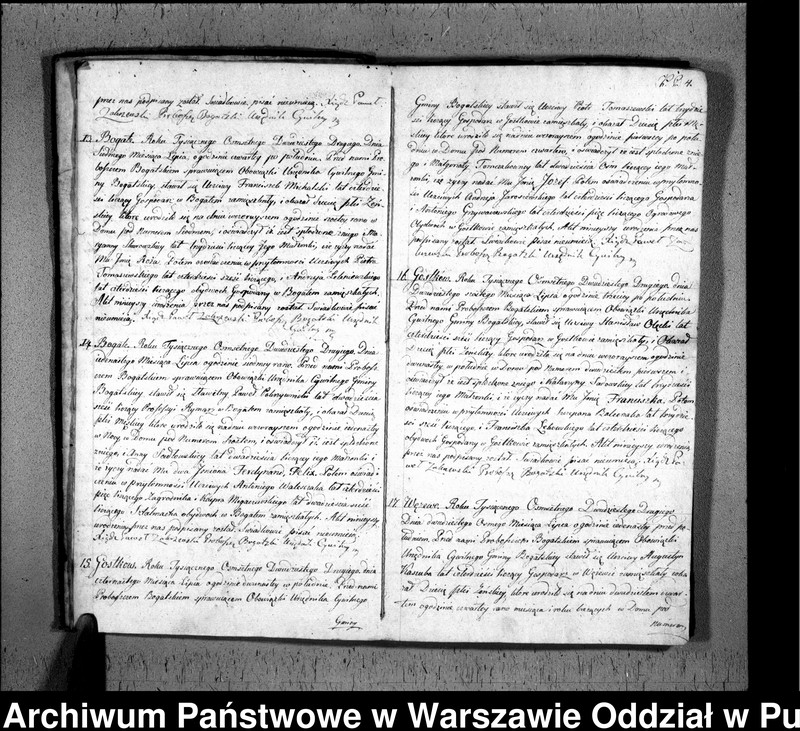 przez nas podpisany został Swiadkowie pisać nieumieią. Xiądz Paweł
Zakrzewski Proboszcz Bogatski Urzędnik Cywilny
13. Bogate. Roku Tysiącznego Osmsetnego Dwudziestego Drugiego, Dnia
Siodmego Miesiąca Lipca, ogodzinie czwartey po południu. Przed nami Pro-
boszczem Bogatskim sprawuiącym Obowiązki Urzędnika Cywilnego Gmi-
ny Bogatskiey, stawił się Uczciwy Franciszek Michalski lat
liczący Gospodarz w Bogatem zamieszkały, i okazał Dziecię płci Żeń-
skiey, które urodziło się na dniu wczorayszym ogodzinie rano w
Domu pod Numerem Siodmem, i oświadczył iż iest spłodzone z niego i Ma-
ryanny lat trzydzieści liczącey Jego Małżonki, i że życzy nadać
Mu Imię Róża. Potem oświadczeniu w przytomności Uczciwych Piotra
Tomaszewskiego lat czterdzieści sześć liczącego, i Andrzeja
lat czterdzieści liczącego obydwoch Gospodarzy w Bogatem zamieszkałych.
Akt ninieyszy urodzenia przez nas podpisany został Swiadkowie pisać
nieumieią. Xiądz Paweł Zakrzewski Proboszcz Bogatski Urzędnik
Cywilny
14. Bogate. Roku Tysiącznego Osmsetnego Dwudziestego Drugiego, Dnia
iedenastego Miesiąca Lipca ogodzinie siodmey rano. Przed nami Probo-
szczem Bogatskim sprawuiącym Obowiązki Urzędnika Cywilnego Gminy
Bogatskiey stawił się Sławetny Paweł lat
sześć liczący Professyi Rymarz w Bogatem zamieszkały, i okazał Dziecię
płci Męskiey które urodziło się na dniu wczorayszym ogodzinie iedenastey
w Nocy w Domu pod Numerem Szostem, i oświadczył iż iest spłodzone
z niego, i Anny lat dwadzieścia liczącey iego Małżonki i
że życzy nadać Mu dwa Imiona Ferdynand, Felix. Potem oświad-
czeniu w przytomności Uczciwych Antoniego lat czterdzieści
pięć liczącego Zagrodnika, i lat dwadzieścia sześć
liczącego obydwoch w Bogatem zamieszkałych. Akt ninieyszy
urodzenia przez nas podpisany został Swiadkowie pisać nieumieią.
Xiądz Paweł Zakrzewski Proboszcz Bogatski Urzędnik Cywilny
15. Gostkow. Roku Tysiącznego Osmsetnego Dwudziestego Drugiego, dnia
czternastego Miesiąca Lipca ogodzinie dwunastey w południe. Przed nami
Proboszczem Bogatskim sprawuiącym Obowiązki Urzędnika Cywilnego
Gminy
4.
Gminy Bogatskiey stawił się Uczciwy Piotr Tomaszewski lat trzydzie-
ści liczący Gospodarz w Gostkowie zamieszkały, i okazał Dziecię płci Mę-
skiey które urodziło się na dniu wczorayszym ogodzinie pierwszey po połu-
dniu w Domu pod Numerem czwartem, i oświadczył iż iest spłodzone z nie-
go i Małgorzaty lat dwadzieścia Osm liczącey iego Mał-
żonki, i że życzy nadać Mu Imię Jozef. Potem oświadczeniu w przytomno-
ści Uczciwych Andrzeja Jarosinskiego lat czterdzieści liczącego Gospodarza
i Antoniego lat czterdzieści pięć liczącego
Obydwoch w Gostkowie zamieszkałych. Akt ninieyszy urodzenia przez nas
podpisany został Swiadkowie pisać nieumieią. Xiądz Paweł Zak-
rzewski Proboszcz Bogatski Urzędnik Cywilny
16. Gostkow. Roku Tysiącznego Osmsetnego Dwudziestego Drugiego, dnia
Dwudziestego Miesiąca Lipca ogodzinie trzeciey po południu.
Przed nami Proboszczem Bogatskim sprawuiącym Obowiązki Urzędnika
Cywilnego Gminy Bogatskiey, stawił się Uczciwy Stanisław Olęcki lat
czterdzieści sześć liczący Gospodarz w Gostkowie zamieszkały, i Okazał
Dziecię płci Żeńskiey, które urodziło się na dniu wczorayszym ogodzinie
dwunastey w południe w Domu pod Numerem dwudziestem pierwszem, i
oświadczył iż iest spłodzone z niego i Katarzyny lat trzydzieści
liczącey iego Małżonki, i iż życzy nadać Mu Imię Franciszka. Potem
oświadczeniu w przytomności Uczciwych lat trzydzie-
ści sześć liczącego, i Franciszka lat czterdzieści liczącego
obydwoch Gospodarzy w Gostkowie zamieszkałych. Akt ninieyszy urodzenia
przez nas podpisany został Swiadkowie pisać nieumieią. Xiądz Pa-
weł Zakrzewski Proboszcz Bogatski Urzędnik Cywilny
17. Roku Tysiącznego Osmsetnego Dwudziestego Drugiego
Dnia dwudziestego Osmego Miesiąca Lipca ogodzinie iedenastey przed po-
łudniem. Przed nami Proboszczem Bogatskim sprawuiącym Obowiązki
Urzędnika Cywilnego Gminy Bogatskiey stawił się Uczciwy Augustyn
Kaszuba lat czterdzieści liczący Gospodarz w zamieszkały i oka-
zał Dziecię płci Żeńskiey, które urodziło się na dniu dwudziestem
ogodzinie czwartey rano miesiąca i roku bieżących w Domu pod
numerem
Archiwum Państwowe w Warszawie Oddział w Pu